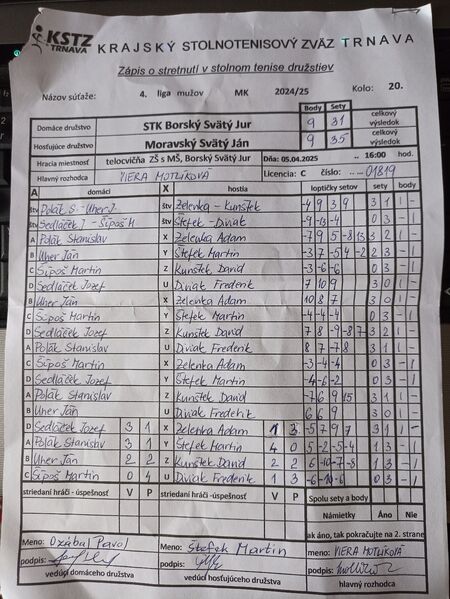 KSTZ TRNAVA KRAJSKÝ STOLNOTENISOVÝ ZVÄZ TRNAVA
Zápis o stretnutí v stolnom tenise družstiev
Názov súťaže: 4. liga mužov MK 2024/25 Kolo: 20.
Body Sety celkový výsledok
Domáce družstvo STK Borský Svätý Jur 9 31
Hosťujúce družstvo Moravský Svätý Ján 9 35 celkový výsledok
Hracia miestnosť telocvičňa ZŠ s MŠ, Borský Svätý Jur Dňa: 05.04.2025 16:00 hod.
Hlavný rozhodca VIERA MOTLÍKOVÁ Licencia: C číslo: 01819
A domáci X hostia loptičky setov sety body
štv Polák S - Uher J. štv Zelenka - Kunštek -4 9 3 9 3 1 1 -
štv Sedláček J - Šipoš M štv Štefek - Diviak -9 -13 -4 0 3 - 1
A Polák Stanislav X Zelenka Adam -7 9 5 -8 13 3 2 1 -
B Uher Ján Y Štefek Martin -3 7 -5 4 -2 2 3 - 1
C Šipoš Martin Z Kunštek David -3 -6 -6 0 3 - 1
D Sedláček Jozef U Diviak Frederik 7 10 9 3 0 1 -
B Uher Ján X Zelenka Adam 10 8 7 3 0 1 -
C Šipoš Martin Y Štefek Martin -4 -4 -4 0 3 - 1
D Sedláček Jozef Z Kunštek David 7 8 -9 -8 7 3 2 1 -
A Polák Stanislav U Diviak Frederik 8 7 -7 8 3 1 1 -
C Šipoš Martin X Zelenka Adam -3 -4 -4 0 3 - 1
D Sedláček Jozef Y Štefek Martin -4 -6 -2 0 3 - 1
A Polák Stanislav Z Kunštek David -7 6 9 15 3 1 1 -
B Uher Ján U Diviak Frederik 6 6 9 3 0 1 -
D Sedláček Jozef 3 1 X Zelenka Adam 1 3 -5 7 9 7 3 1 1 -
A Polák Stanislav 3 1 Y Štefek Martin 4 0 5 -2 -5 -4 1 3 - 1
B Uher Ján 2 2 Z Kunštek David 2 2 6 -10 -7 -8 1 3 - 1
C Šipoš Martin 0 4 U Diviak Frederik 1 3 -6 -10 -6 0 3 - 1
striedaní hráči - úspešnosť V P striedaní hráči - úspešnosť V P Spolu sety a body
Námietky Áno Nie
ak áno, tak pokračujte na 2. strane
Meno: Ozábal Pavol Meno: Štefek Martin meno: VIERA MOTLÍKOVÁ
podpis: podpis: podpis:
vedúci domáceho družstva vedúci hosťujúceho družstva hlavný rozhodca